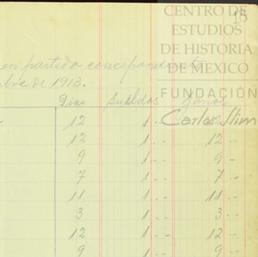 CENTRO DE
ESTUDIOS
DE HISTORIA
DE MEXICO
FUNDACIÓN
Carlos Slim
15
en partida correspondiente
bre de 1913.
Dias Sueldos
12 1 - -
12 1 - - 12 -
9 1 - - 9 -
7 1 - - 7 -
11 1 - - 11 -
3 1 - - 3 - -
12 1 - - 12 -
9 1 - - 9 -